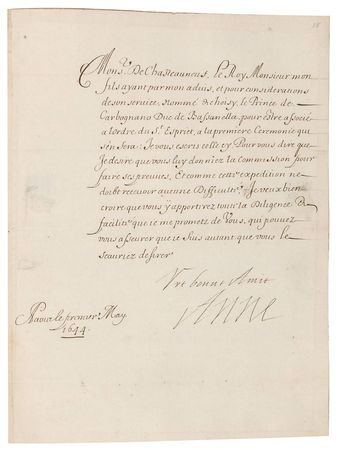 Mons.r De Chasteauneuf, le Roy Monsieur mon
fils ayant par mon aduis, et pour considerations
de son seruice, nommé & choisy, le Prince de
Carbognano Duc de Bassanella, pour estre associé
a lordre du S.t Esprit, a la premiere Ceremonie qui
s'en fera: Je vous escris celle cy Pour vous dire que
Je desire que vous luy donniez la Commission pour
faire ses preuues, Et comme cette expedition ne
doubt receuoir aucune Difficulté, Je veux bien
croire que vous y apporterez toute la Diligence &
facilité que ie me promets de Vous, qui pouuez
vous asseurer que ie suis autant que vous le
scauriez desirer
Vre bonne Amie
Anne
le premier May
1644